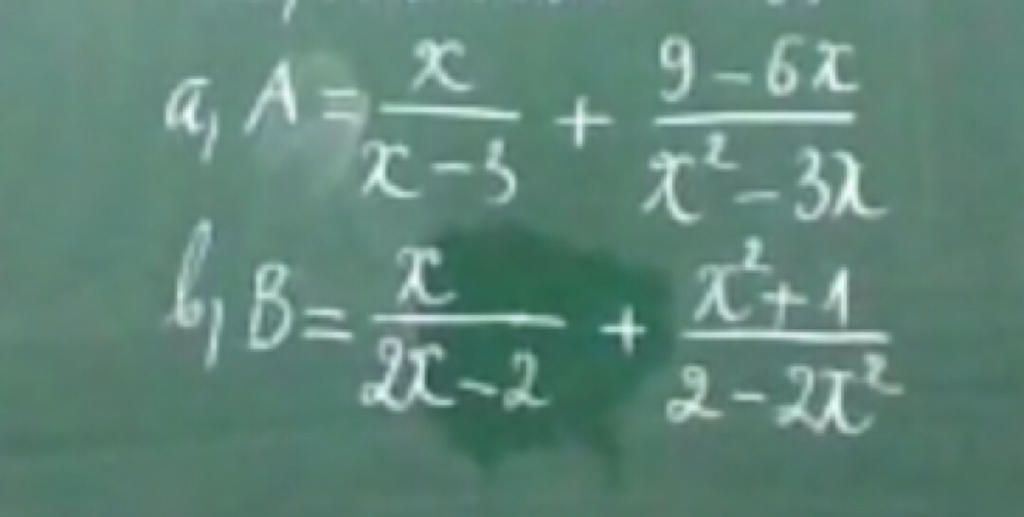 a, A = \frac{x}{x-3} + \frac{9-6x}{x^2-3x}
b, B = \frac{x}{2x-2} + \frac{x^2+1}{2-2x^2}